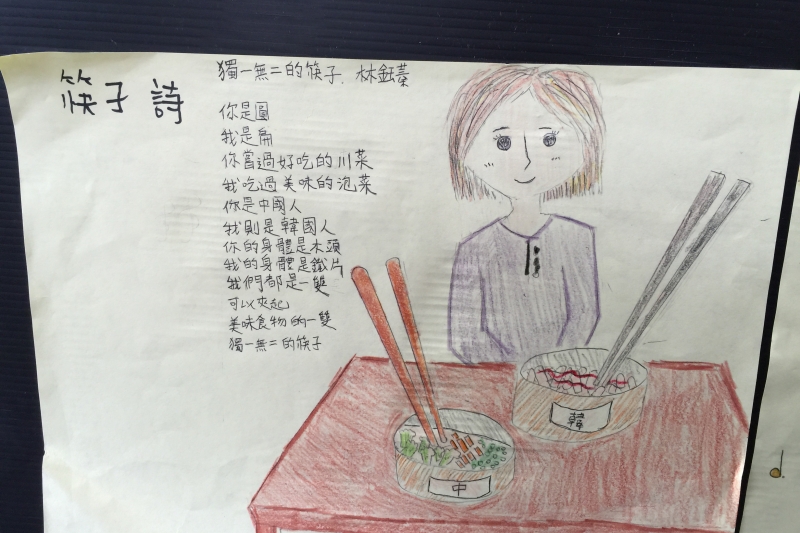 筷子 詩
獨一無二的筷子. 林鈺蓁
你是圓
我是扁
你嘗過好吃的川菜
我吃過美味的泡菜
你是中國人
我則是韓國人
你的身體是木頭
我的身體是鐵片
我們都是一雙
可以夾起
美味食物的一雙
獨一無二的筷子
韓
中
d.